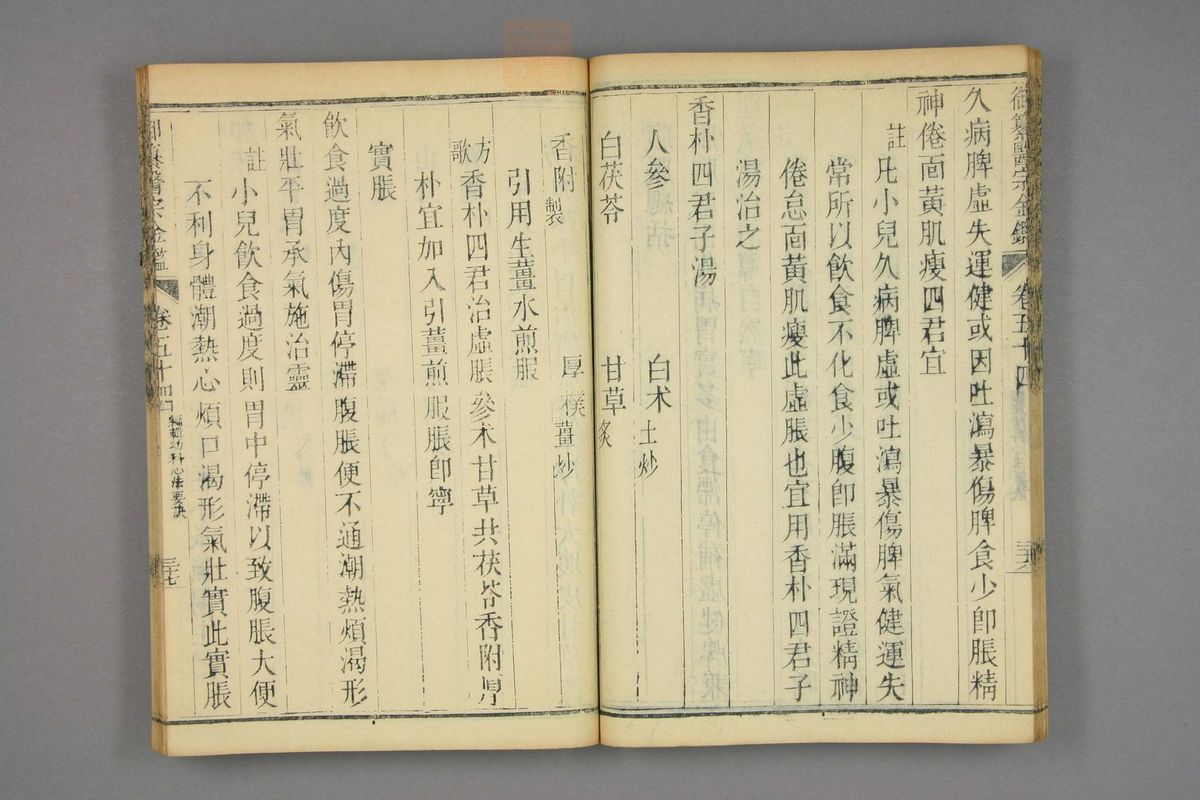 御纂醫宗金鑑 卷五十四
久病脾虛失運健或因吐瀉暴傷脾食少卽脹精
神倦面黃肌瘦四君宜
註凡小兒久病脾虛或吐瀉暴傷脾氣健運失
常所以飲食不化食少腹卽脹滿現證精神
倦怠面黃肌瘦此虛脹也宜用香朴四君子
湯治之
香朴四君子湯
人參 白术土炒
白茯苓 甘草炙
香附製 厚樸薑炒
引用生薑水煎服
方歌香朴四君治虛脹參术甘草共茯苓香附厚
朴宜加入引薑煎服脹卽寧
實脹
飲食過度內傷胃停滯腹脹便不通潮熱煩渴形
氣壯平胃承氣施治靈
註小兒飲食過度則胃中停滯以致腹脹大便
不利身體潮熱心煩口渴形氣壯實此實脹
御纂醫宗金鑑 卷五十四 編輯幼科心法要訣 三十七